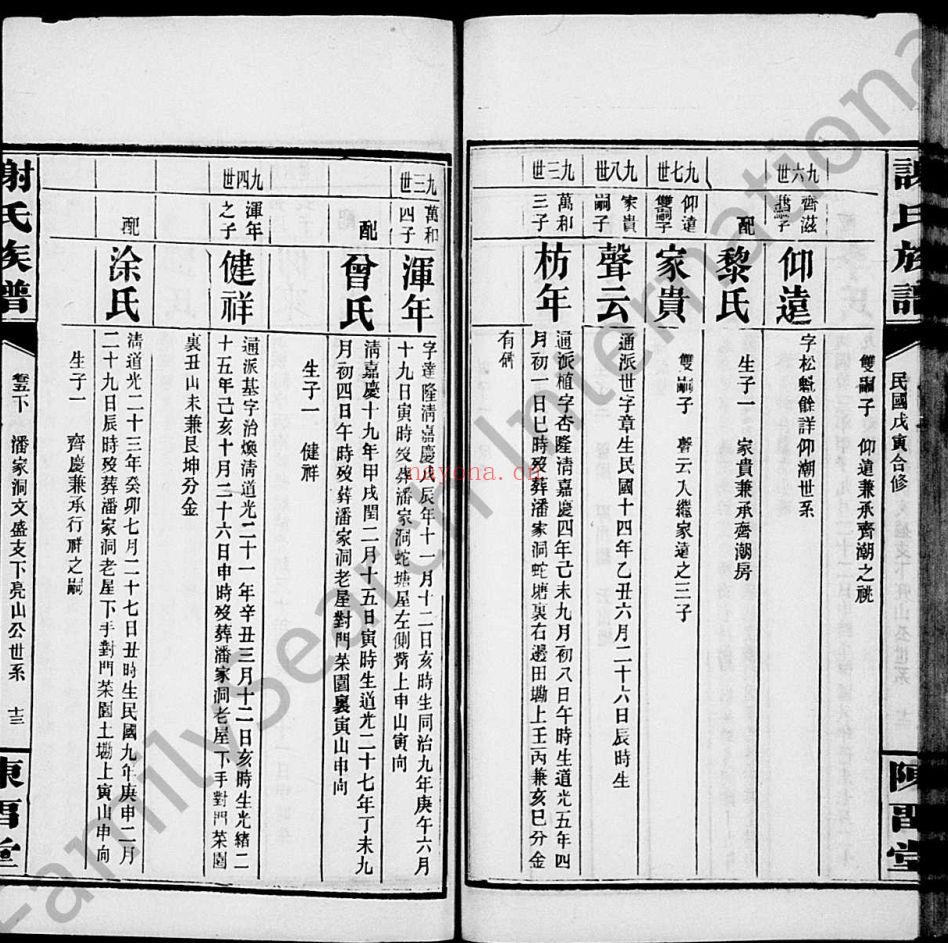 民國戊寅合修
雙嗣子 仰遠兼承齊潮之祧
九六世
齊滋
仰遠
字松魁餘詳仰潮世系
配
黎氏
生子一 家貴兼承齊潮房
九七世
仰遠
雙嗣子
家貴
雙嗣子 聲云入繼家遠之三子
九八世
家貴
嗣子
聲云
通派世字章生民國十四年乙丑六月二十六日辰時生
九三世
萬和
三子
枋年
通派植字杏隆清嘉慶四年己未九月初八日午時生道光五年四
月初一日巳時歿葬潘家洞蛇塘裏右邊田墈上壬丙兼亥巳分金
有碑
九三世
萬和
四子
渾年
字達隆清嘉慶戊辰年十一月十二日亥時生同治九年庚午六月
十九日寅時歿葬潘家洞蛇塘屋左側上申山寅向
配
曾氏
清嘉慶十九年甲戌閏二月十五日寅時生道光二十七年丁未九
月初四日午時歿葬潘家洞老屋對門菜園裏寅山申向
生子一 健祥
九四世
渾年
之子
健祥
通派基字治煥清道光二十一年辛丑三月十二日亥時生光緒二
十五年己亥十月二十六日申時歿葬潘家洞老屋下手對門菜園
裏丑山未兼艮坤分金
配
涂氏
清道光二十三年癸卯七月二十七日丑時生民國九年庚申二月
二十九日辰時歿葬潘家洞老屋下手對門菜園土墈上寅山申向
生子一 齊慶兼承行祥之嗣
謝氏族譜
下 潘家洞文盛支下亮山公世系 十三
東習堂
FamilySearch International
nayona.cn